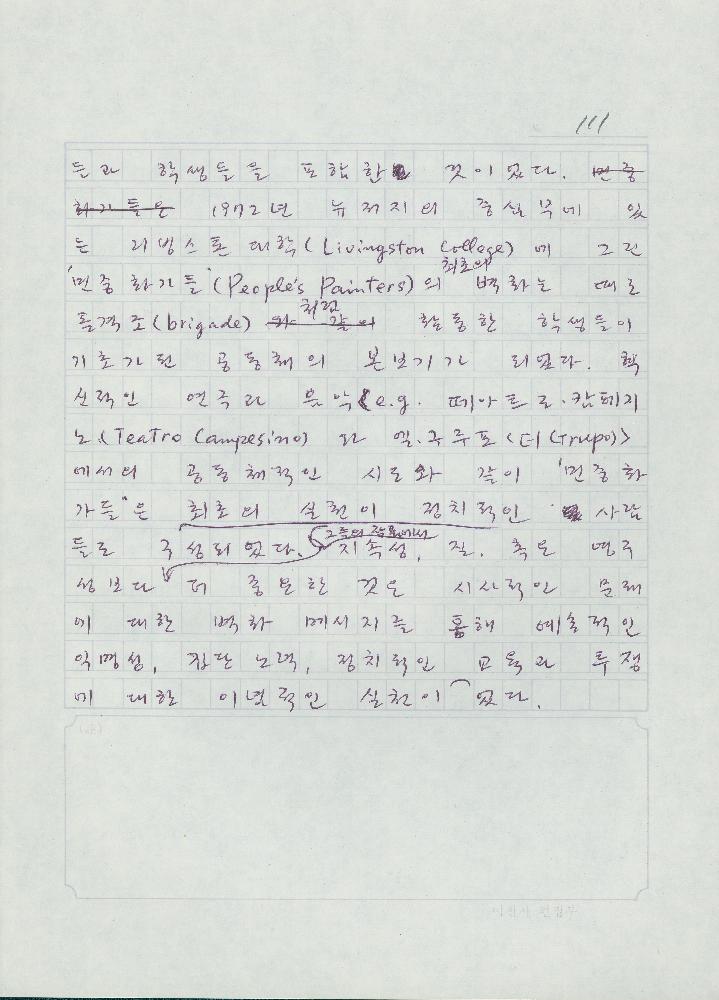 111
들과 학생들을 포함한 것이었다. 민중
화가들은 1972년 뉴저지의 중심부에 있
는 리빙스톤 대학(Livingston College)에 그린
최초의
'민중 화가들'(People's Painters)의 벽화는 때로
처럼
돌격조(brigade) 와 같이 활동한 학생들이
기초가 된 공동체의 본보기가 되었다. 혁
신적인 연극과 음악(e.g. 떼아트로·캄페지
노(Teatro Campesino) 와 엘·구루포(El Grupo)>
에서의 공동체적인 시도와 같이 '민중화
가들'은 최초의 실천이 정치적인 사람
그들의 작품에서
들로 구성되었다. 지속성, 질, 혹은 영구
성보다 더 중요한 것은 시사적인 문제
에 대한 벽화 메시지를 통해 예술적인
익명성, 집단 노력, 정치적인 교육과 투쟁
에 대한 이념적인 실천이었다.
편집부